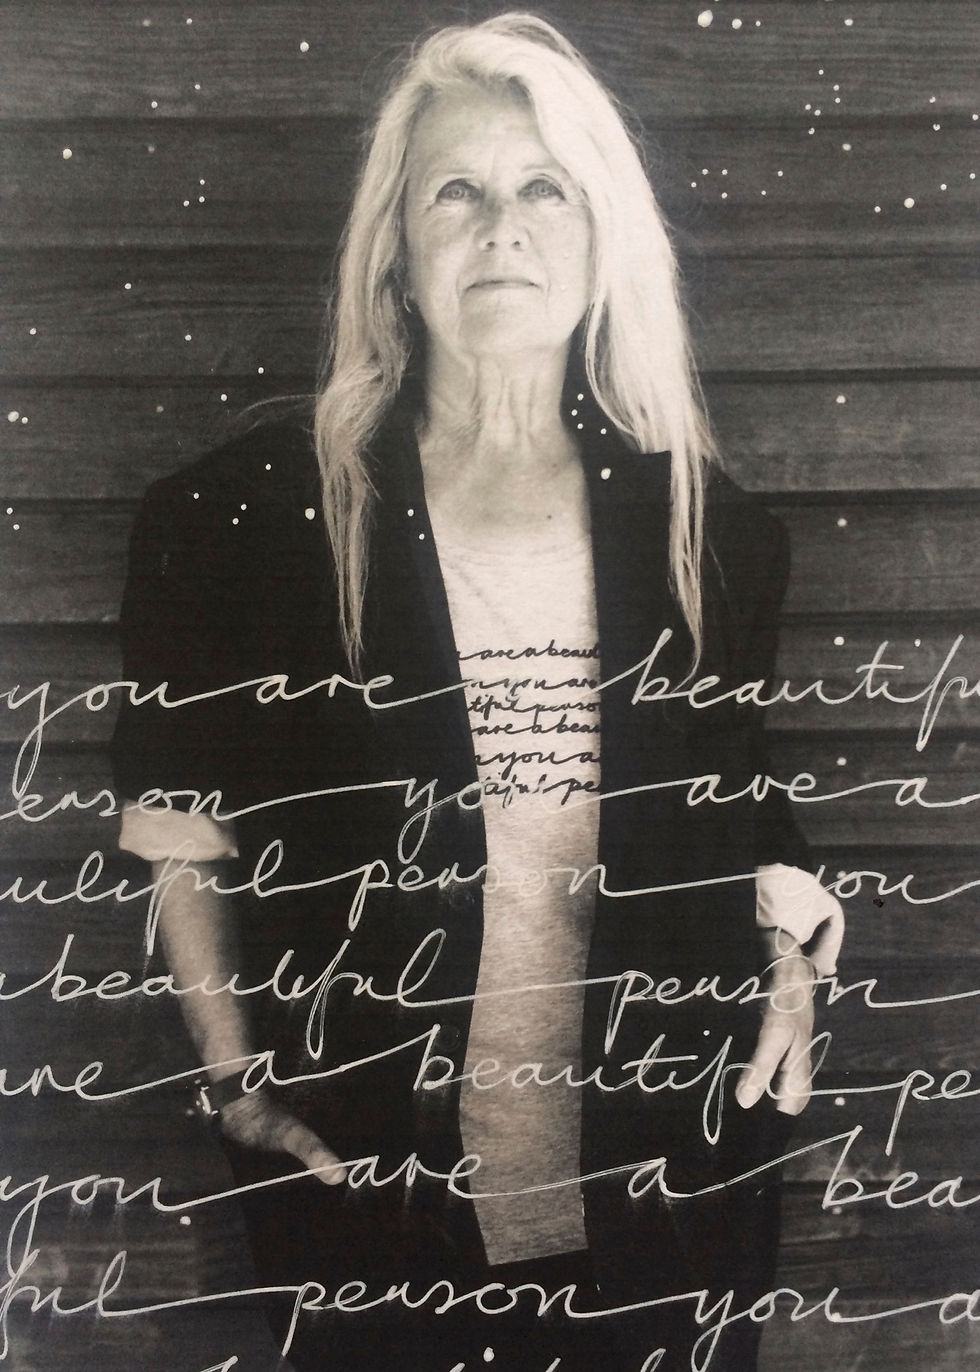 are a beaut
n you are
tiful perso
are a beau
you a
tiful pe
you are beautifu
erson you are a
utiful person you
a beautiful person
are a beautiful pe
you are a bea
ful person you a